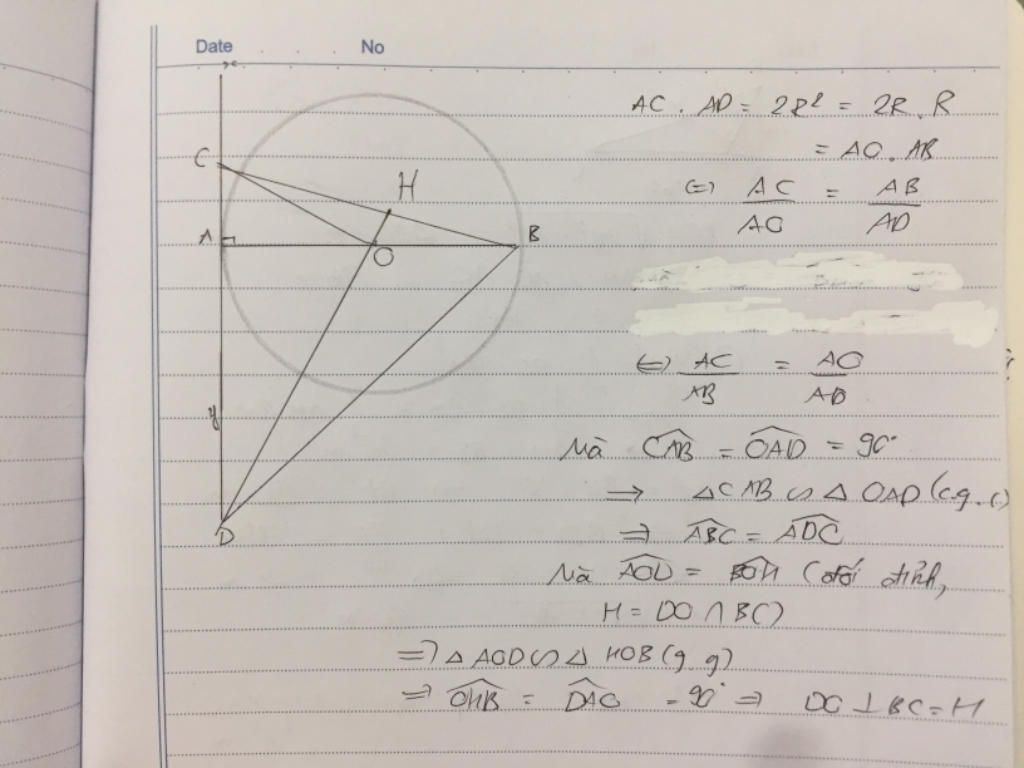 Date No
x
C
H
A
B
O
y
D
AC . AD = 2R² = 2R . R
= AO . AB
(=) AC/AO = AB/AD
(=) AC/AB = AO/AD
Mà CAB = OAD = 90°
=> ΔCAB ∽ Δ OAD (c.g.c)
=> ABC = ADO
Mà AOD = BOH (đối đỉnh,
H = DO ∩ BC)
=> Δ AOD ∽ Δ HOB (g.g)
=> OHB = DAO = 90° => DO ⊥ BC = H